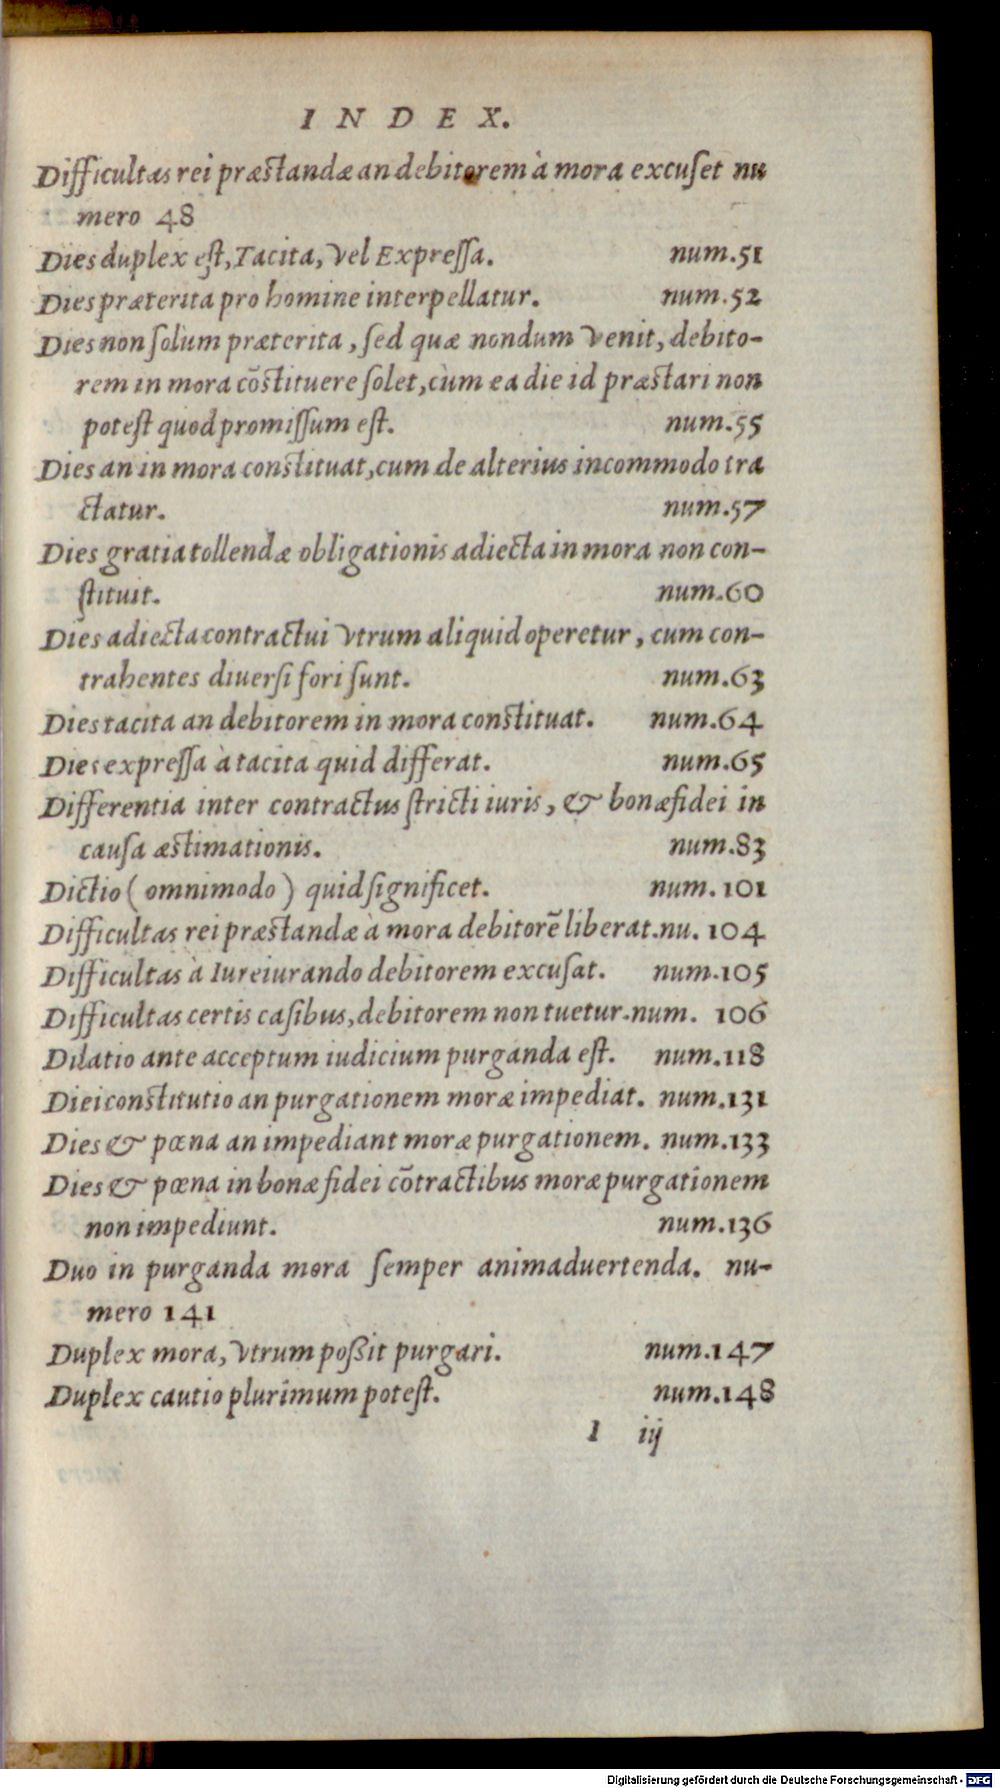 INDEX.
Difficultas rei præstandæ an debitorem à mora excuset nu
mero 48
Dies duplex est, Tacita, vel Expressa. num.51
Dies præterita pro homine interpellatur. num.52
Dies non solùm præterita, sed quæ nondum venit, debito-
rem in mora cõstituere solet, cùm ea die id præstari non
potest quod promissum est. num.55
Dies an in mora constituat, cum de alterius incommodo tra
ctatur. num.57
Dies gratia tollendæ obligationis adiecta in mora non con-
stituit. num.60
Dies adiecta contractui vtrum aliquid operetur, cum con-
trahentes diuersi fori sunt. num.63
Dies tacita an debitorem in mora constituat. num.64
Dies expressa à tacita quid differat. num.65
Differentia inter contractus stricti iuris, & bonæfidei in
causa æstimationis. num.83
Dictio (omnimodo) quid significet. num. 101
Difficultas rei præstandæ à mora debitorē liberat.nu. 104
Difficultas à Iureiurando debitorem excusat. num.105
Difficultas certis casibus, debitorem non tuetur.num. 106
Dilatio ante acceptum iudicium purganda est. num.118
Diei constitutio an purgationem moræ impediat. num.131
Dies & pœna an impediant moræ purgationem. num.133
Dies & pœna in bonæ fidei cõtractibus moræ purgationem
non impediunt. num.136
Duo in purganda mora semper animaduertenda. nu-
mero 141
Duplex mora, vtrum poßit purgari. num.147
Duplex cautio plurimum potest. num.148
I iij
Digitalisierung gefördert durch die Deutsche Forschungsgemeinschaft - DFG